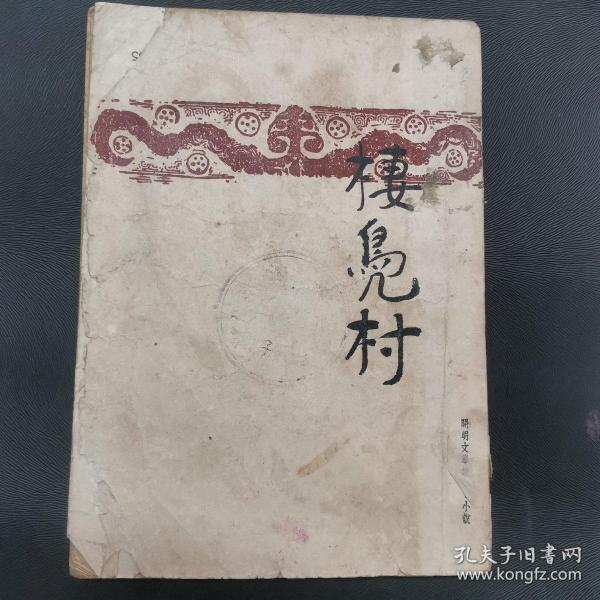 棲鳧村
開明文學
小說
孔夫子旧書网
www.kongfz.com